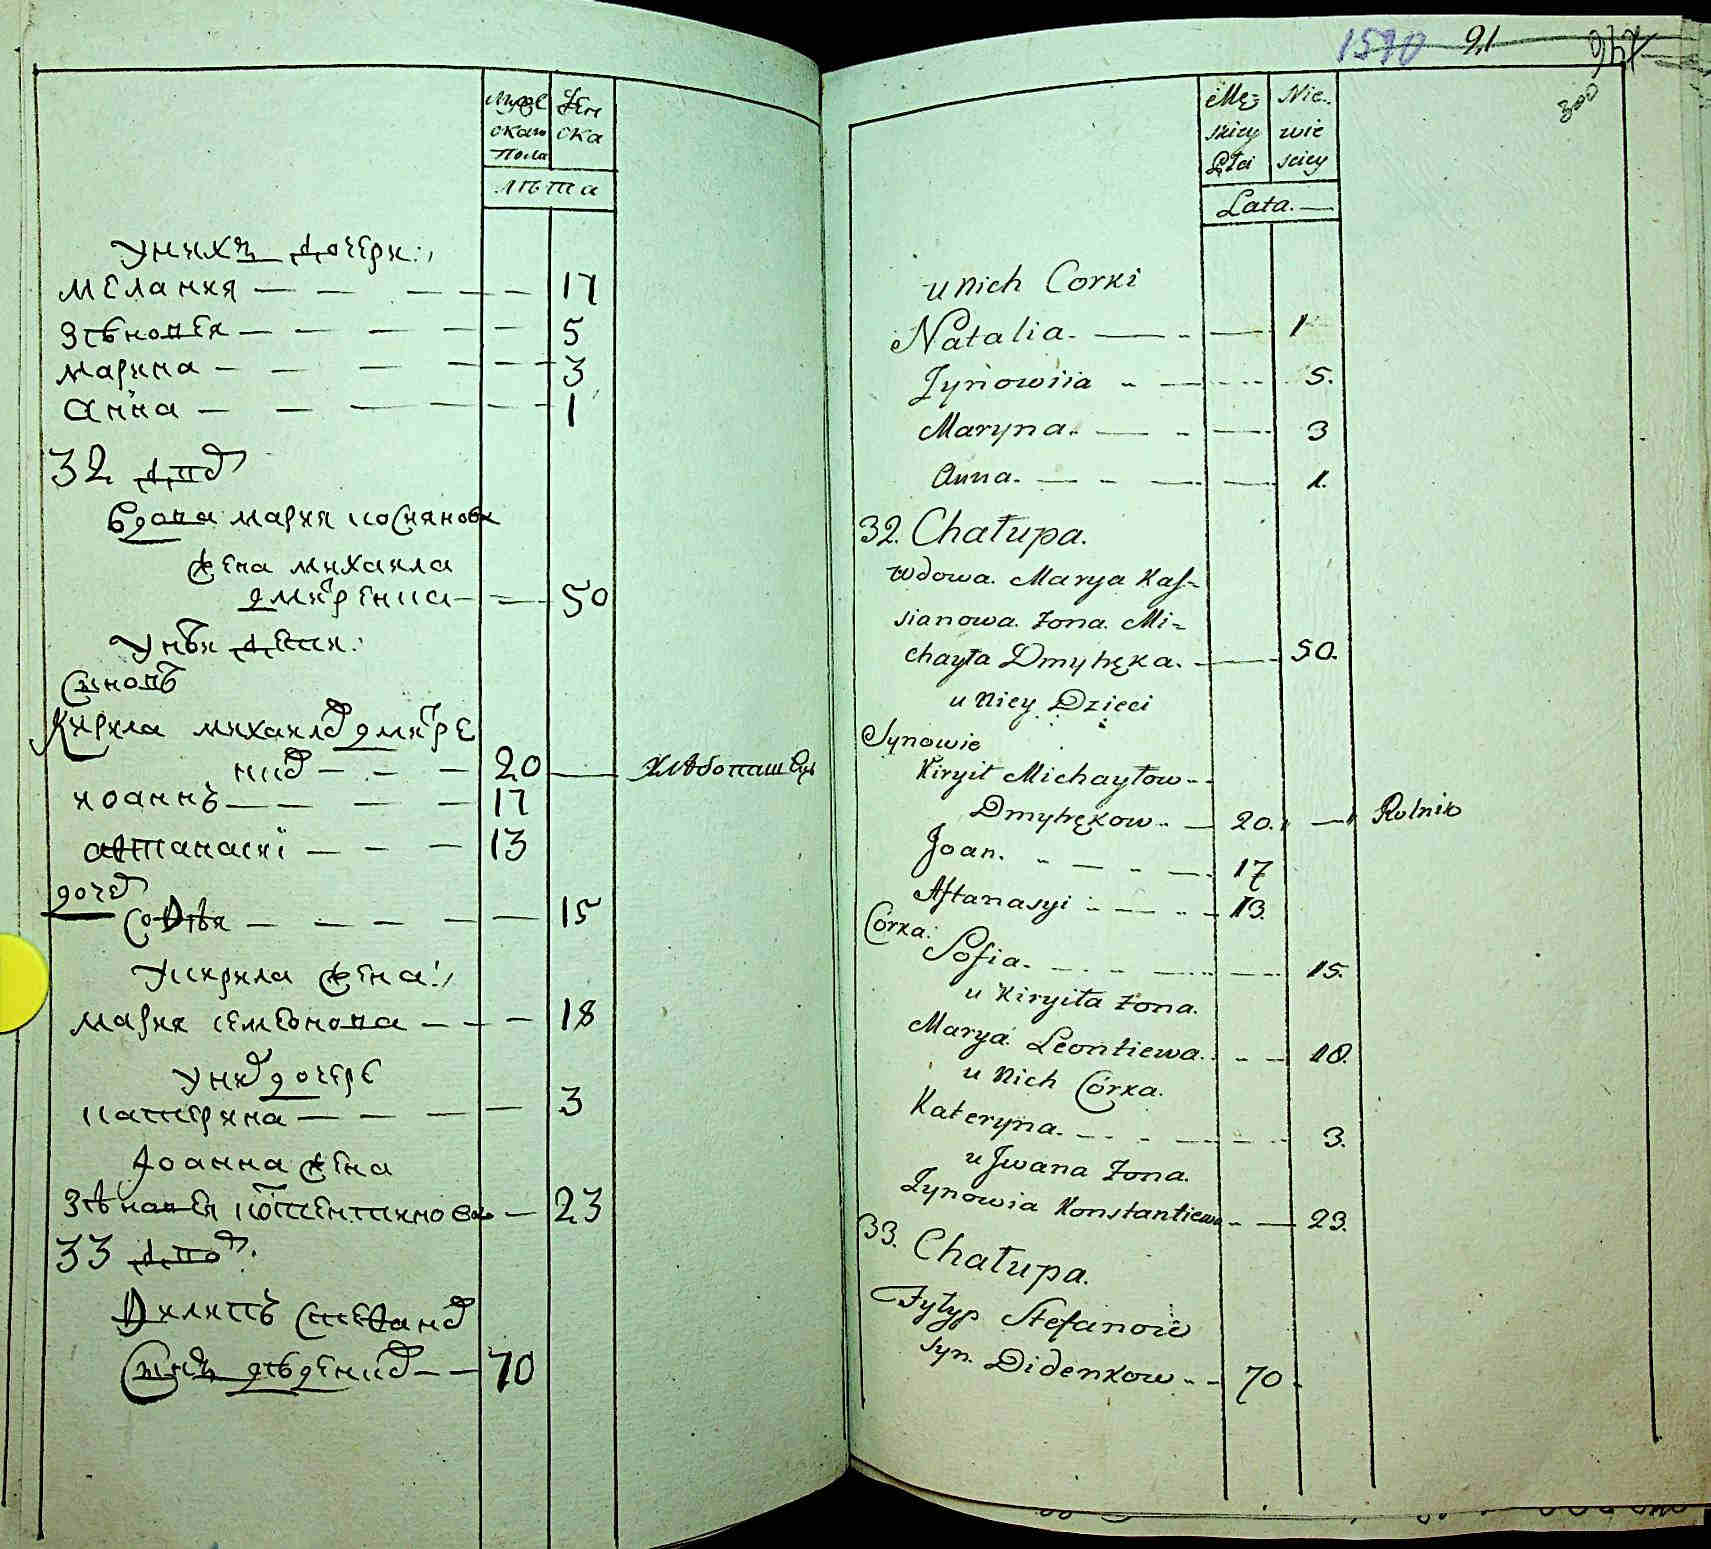 Мужескаго Пола
Женска
лѣта
У нихъ дочери:
Мелания — — — — — 17
Зѣновея — — — — — 5
Марина — — — — — 3
Анна — — — — — 1
32 двор
Вдова Мария Косиянова
жена Михаила
Дмитренка — — 50
У нея дети:
Сыновѣ
Кирила Михайлов Дмитре
нков — — — 20 — хлѣбопашец
Иоаннъ — — — — 17
Афтанасиї — — — 13
дочер
Софѣя — — — — — 15
У Кирила жена:
Мария Семеонова — — — 18
У них дочере
Катерина — — — — — 3
Иоанна жена
Зѣновея Костентинова — 23
33 двор
Филипъ Стефанов
Сынъ Дѣденков — — 70
1590 91
300
Męskiey Płci
Niewiesciey
Lata.
u nich Corki
Natalia. — — 1
Zynowiia — — 5.
Maryna. — — 3
Anna. — — — 1.
32. Chałupa.
wdowa. Marya Kas-
sianowa. Żona. Mi-
chayła Dmytręka. — 50.
u Niey Dzieci
Synowie
Kiryił Michayłow
Dmytrękow — 20. — Rolnik
Joan. — — — 17
Aftanasyi — — 13.
Córka:
Sofia. — — — 15.
u Kiryiła Żona.
Marya Leontiewa. — — 18.
u Nich Córka.
Kateryna. — — — 3.
u Jwana Żona.
Zynowia Konstantiewa — — 23.
33. Chałupa.
Fyłyp Stefanow
syn. Didenkow — 70